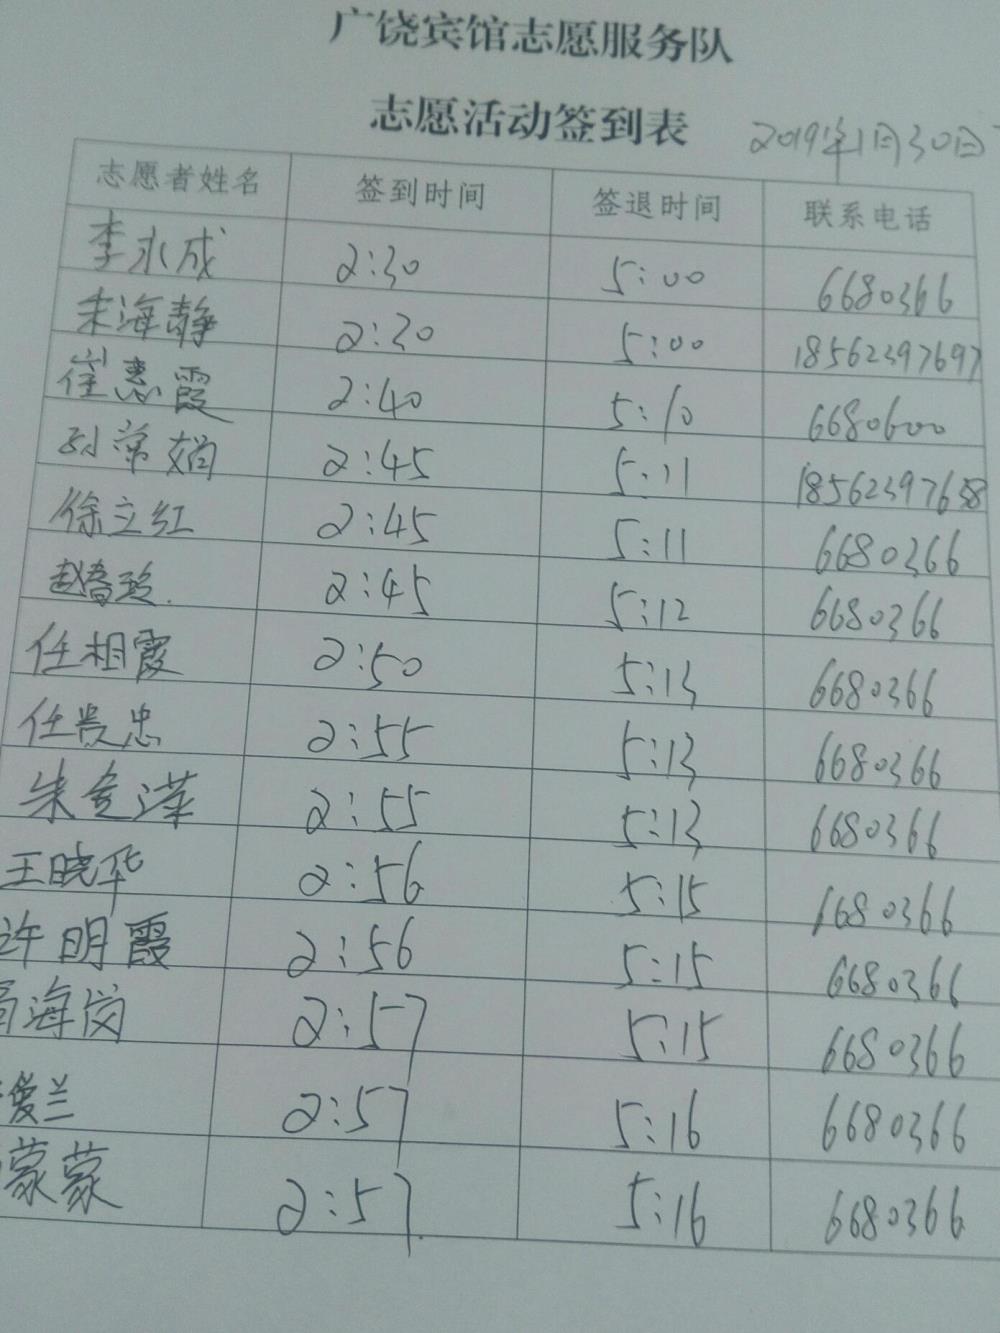 广饶宾馆志愿服务队
志愿活动签到表 2019年1月30日下
志愿者姓名 签到时间 签退时间 联系电话
李永成 2:30 5:00 6680366
朱海静 2:30 5:00 18562397697
崔惠霞 2:40 5:10 6680600
孙常娟 2:45 5:11 18562397658
徐立红 2:45 5:11 6680366
赵春玲 2:45 5:12 6680366
任相霞 2:50 5:13 6680366
任贵忠 2:55 5:13 6680366
朱金 2:55 5:13 6680366
王晓华 2:56 5:15 6680366
许明霞 2:56 5:15 6680366
海 2:57 5:15 6680366
兰 2:57 5:16 6680366
蒙蒙 2:57 5:16 6680366